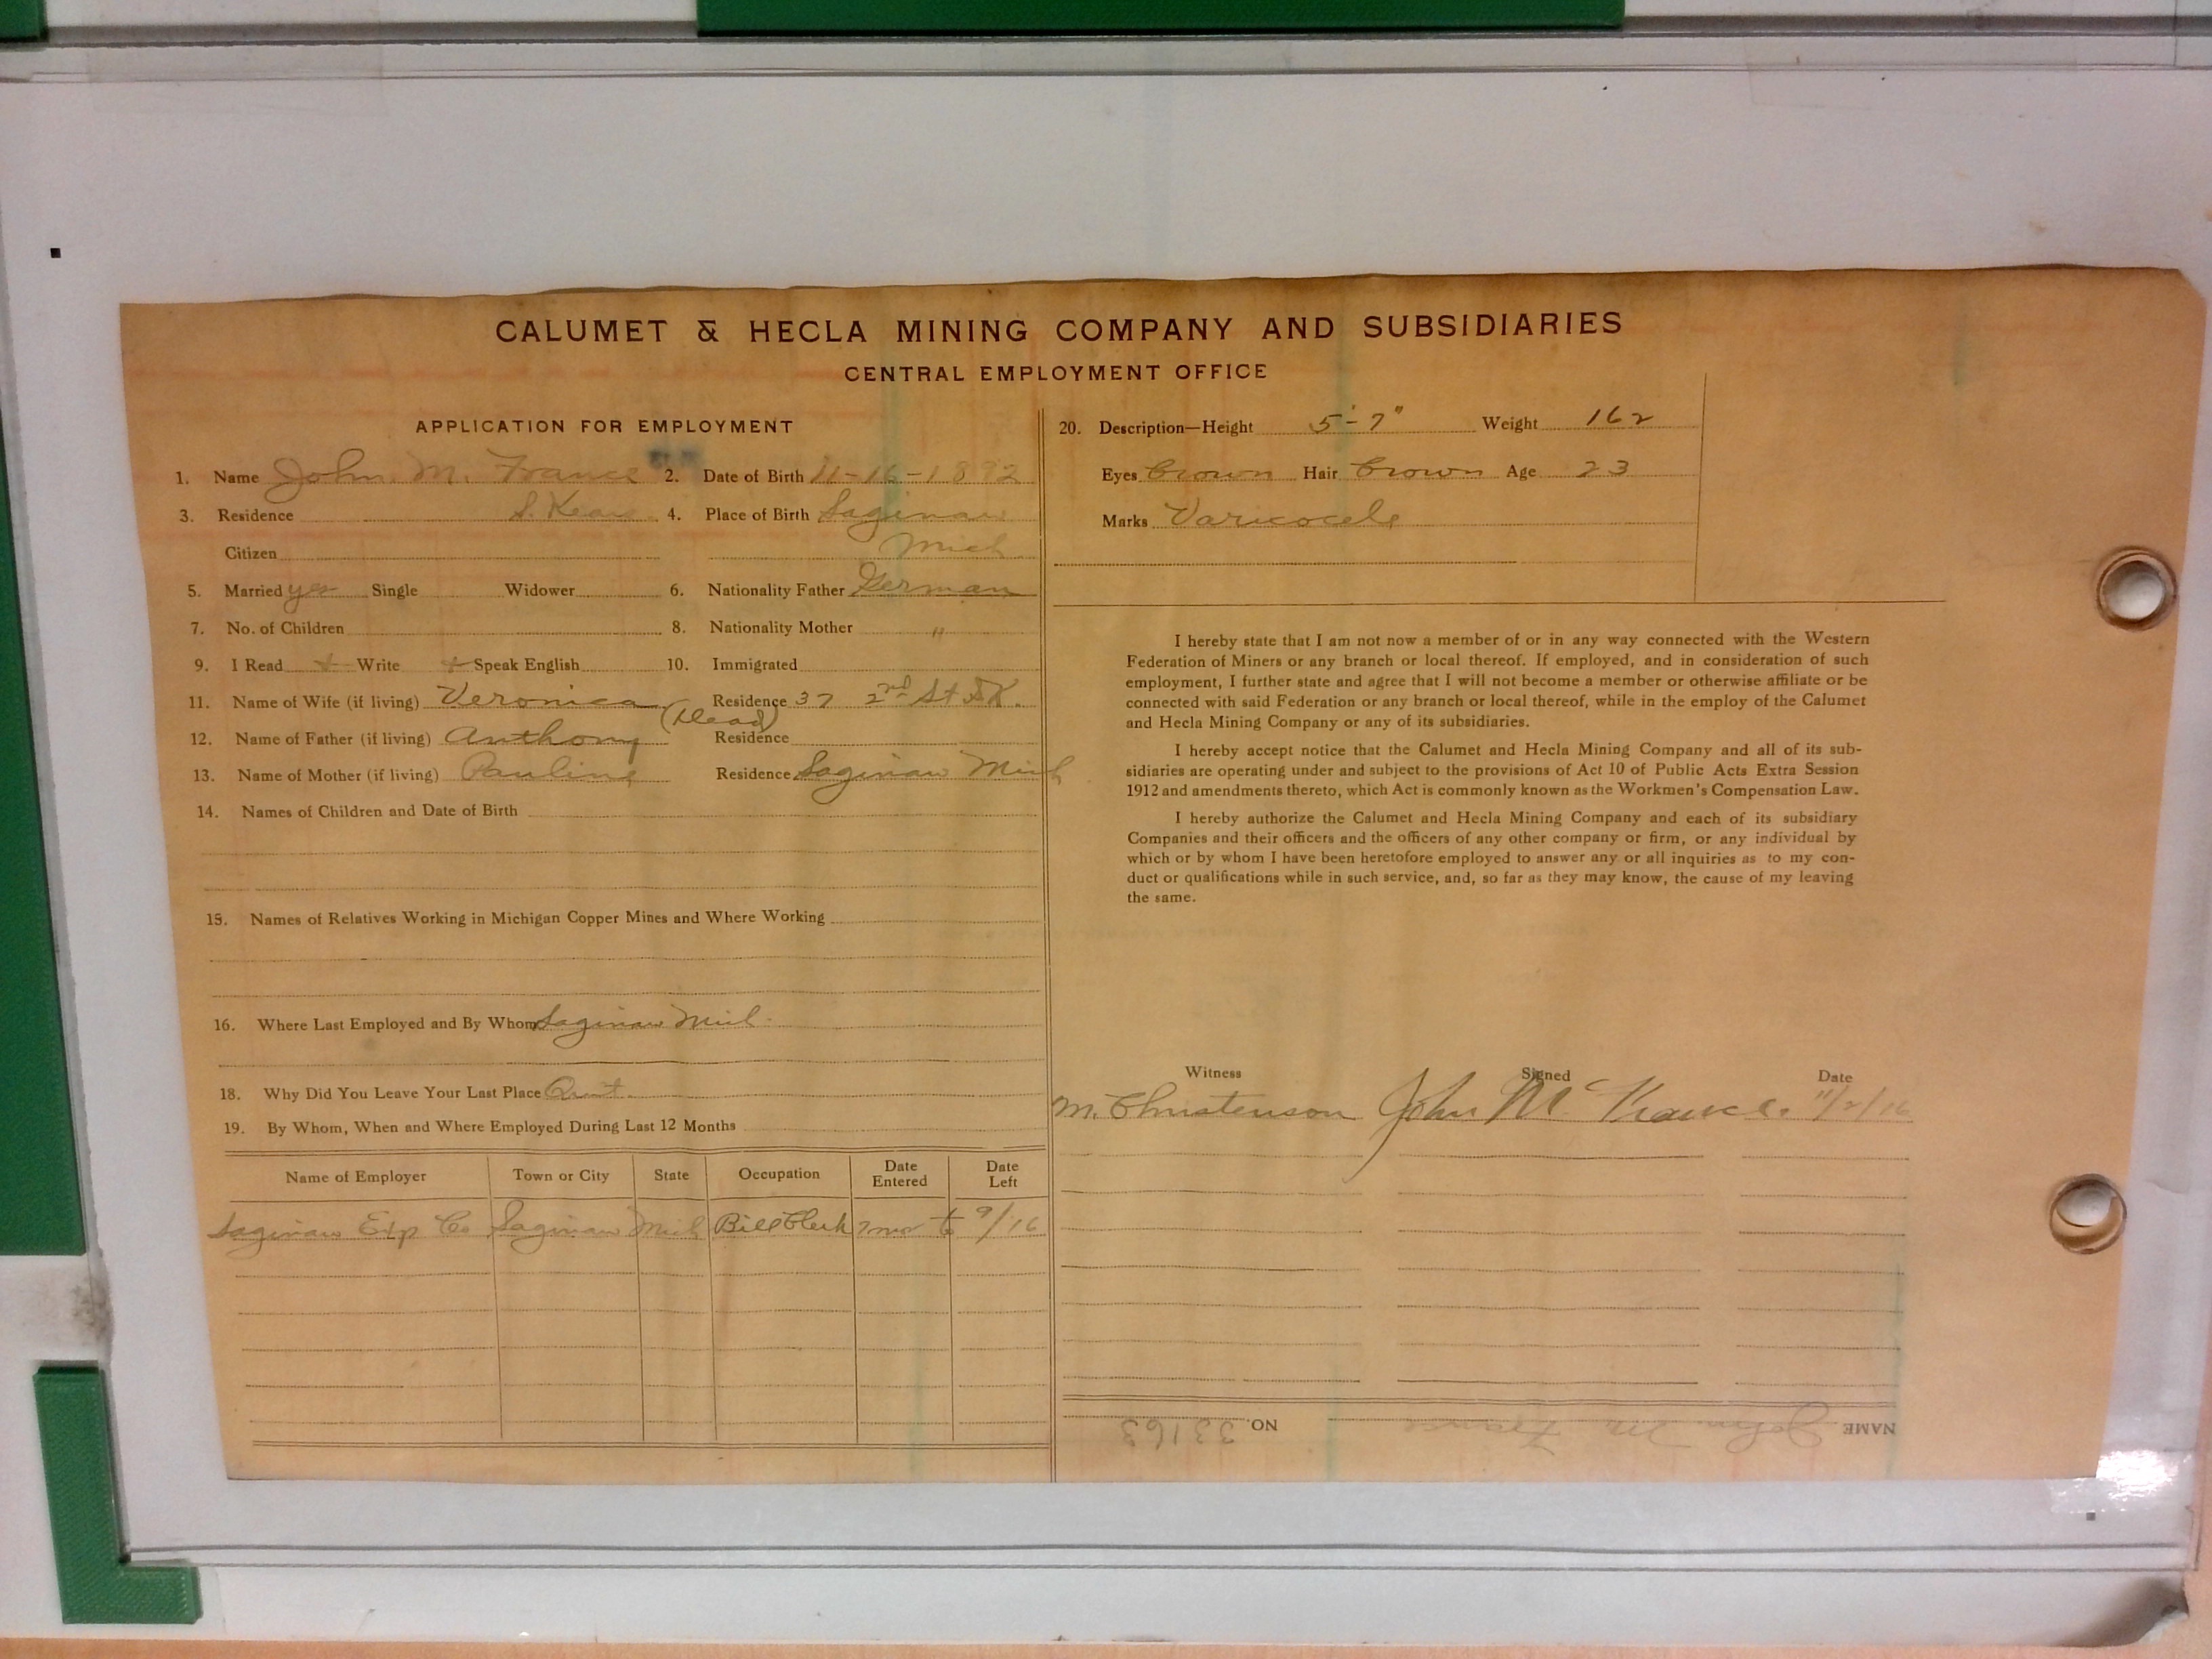 CALUMET & HECLA MINING COMPANY AND SUBSIDIARIES
CENTRAL EMPLOYMENT OFFICE
APPLICATION FOR EMPLOYMENT
1. Name John M. France 2. Date of Birth 11-16-1892
3. Residence S. Kear 4. Place of Birth Saginaw
Citizen Mich
5. Married yes Single Widower 6. Nationality Father German
7. No. of Children 8. Nationality Mother "
9. I Read Write Speak English 10. Immigrated
11. Name of Wife (if living) Veronica Residence 37 2nd St S.K.
12. Name of Father (if living) Anthony (Dead) Residence
13. Name of Mother (if living) Pauline Residence Saginaw Mich
14. Names of Children and Date of Birth
15. Names of Relatives Working in Michigan Copper Mines and Where Working
16. Where Last Employed and By Whom Saginaw Mich.
18. Why Did You Leave Your Last Place Quit.
19. By Whom, When and Where Employed During Last 12 Months
Name of Employer Town or City State Occupation Date Entered Date Left
Saginaw Co Saginaw Mich Bill Clerk 7 mos 9/16
20. Description—Height 5'-7" Weight 162
Eyes Brown Hair Brown Age 23
Marks Varicocele
I hereby state that I am not now a member of or in any way connected with the Western
Federation of Miners or any branch or local thereof. If employed, and in consideration of such
employment, I further state and agree that I will not become a member or otherwise affiliate or be
connected with said Federation or any branch or local thereof, while in the employ of the Calumet
and Hecla Mining Company or any of its subsidiaries.
I hereby accept notice that the Calumet and Hecla Mining Company and all of its sub-
sidiaries are operating under and subject to the provisions of Act 10 of Public Acts Extra Session
1912 and amendments thereto, which Act is commonly known as the Workmen's Compensation Law.
I hereby authorize the Calumet and Hecla Mining Company and each of its subsidiary
Companies and their officers and the officers of any other company or firm, or any individual by
which or by whom I have been heretofore employed to answer any or all inquiries as to my con-
duct or qualifications while in such service, and, so far as they may know, the cause of my leaving
the same.
Witness Signed Date
M. Christenson John Mc France. 11/2/16
NAME John M. France NO. 33163